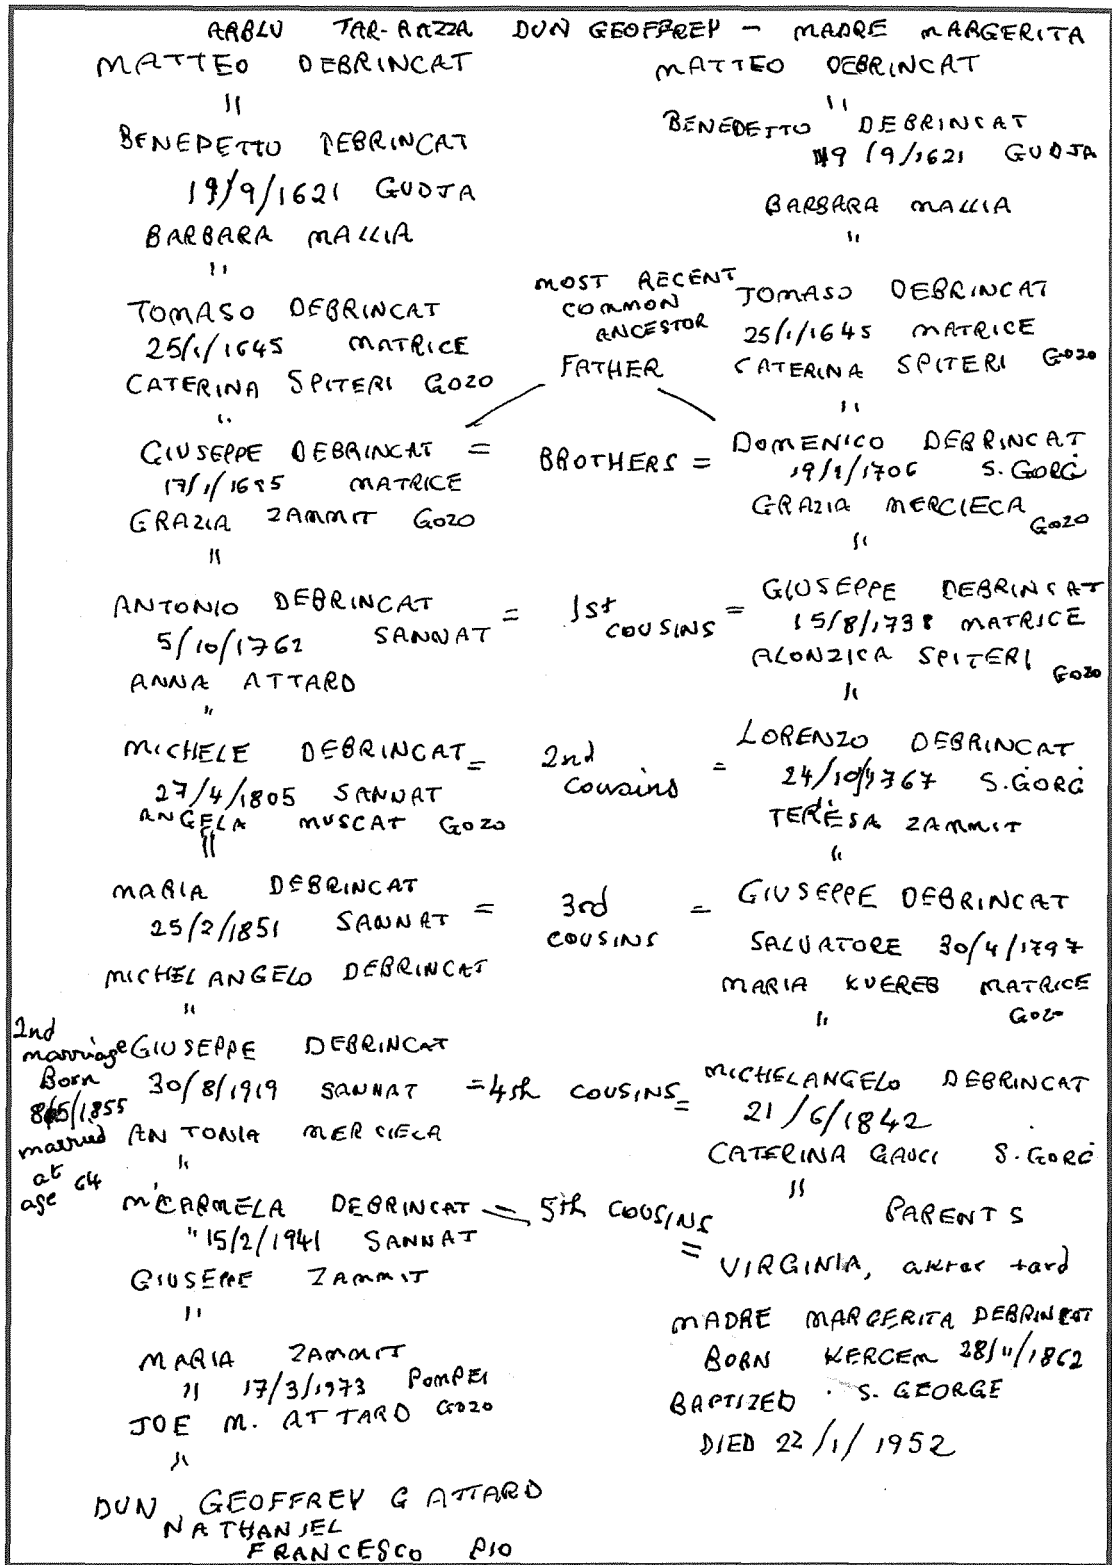 ARBLU TAR-RAZZA DUN GEOFFREY - MADRE MARGERITA
MATTEO DEBRINCAT
"
BENEDETTO DEBRINCAT
19/9/1621 GUDJA
BARBARA MALLIA
"
TOMASO DEBRINCAT
25/1/1645 MATRICE
CATERINA SPITERI GOZO
"
GIUSEPPE DEBRINCAT =
17/1/1695 MATRICE
GRAZIA ZAMMIT GOZO
"
ANTONIO DEBRINCAT =
5/10/1762 SANNAT
ANNA ATTARD
"
MICHELE DEBRINCAT =
27/4/1805 SANNAT
ANGELA MUSCAT GOZO
"
MARIA DEBRINCAT
25/2/1851 SANNAT =
MICHEL ANGELO DEBRINCAT
"
2nd
marriage
Born
8/5/1855
married
at
age 64
GIUSEPPE DEBRINCAT
30/8/1919 SANNAT
ANTONIA MERCIECA
"
M'CARMELA DEBRINCAT
" 15/2/1941 SANNAT
GIUSEPPE ZAMMIT
"
MARIA ZAMMIT
" 17/3/1973 POMPEI
JOE M. ATTARD GOZO
"
DUN GEOFFREY G ATTARD
NATHANIEL
FRANCESCO PIO
MOST RECENT
COMMON
ANCESTOR
FATHER
BROTHERS =
1st
COUSINS =
2nd
Cousins =
3rd
COUSINS =
= 4th COUSINS =
= 5th COUSINS
=
MATTEO DEBRINCAT
"
BENEDETTO DEBRINCAT
19/9/1621 GUDJA
BARBARA MALLIA
"
TOMASO DEBRINCAT
25/1/1645 MATRICE
CATERINA SPITERI GOZO
"
DOMENICO DEBRINCAT
19/1/1706 S. GORĠ
GRAZIA MERCIECA GOZO
"
GIUSEPPE DEBRINCAT
15/8/1738 MATRICE
ALONZICA SPITERI GOZO
"
LORENZO DEBRINCAT
24/10/1767 S. ĠORĠ
TERESA ZAMMIT
"
GIUSEPPE DEBRINCAT
SALVATORE 30/4/1797
MARIA XUEREB MATRICE
GOZO
"
MICHELANGELO DEBRINCAT
21/6/1842
CATERINA GAUCI S. GORĠ
"
PARENTS
VIRGINIA, aktar tard
MADRE MARGERITA DEBRINCAT
BORN KERCEM 28/11/1862
BAPTIZED S. GEORGE
DIED 22/1/1952